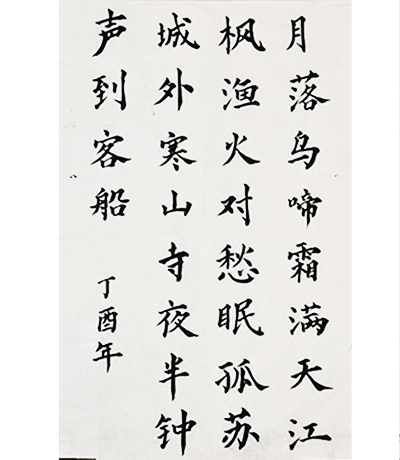 月落鸟啼霜满天江
枫渔火对愁眠孤苏
城外寒山寺夜半钟
声到客船
丁酉年